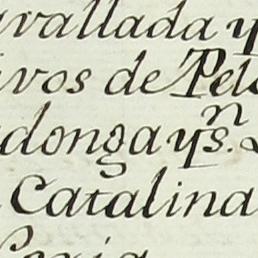 vallada y
vos de Pel
donga y Sⁿ.
Catalina